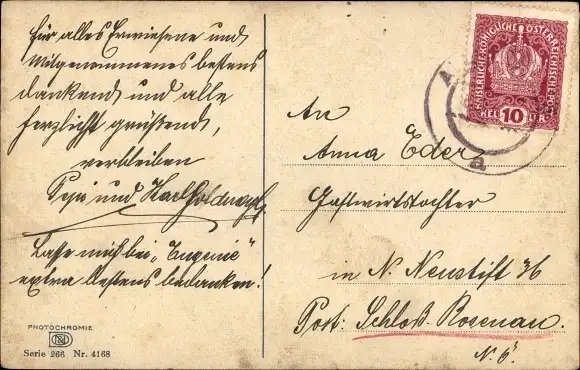 für alles Erwiesene und
Mitgenommenes bestens
dankend und alle
herzlichst grüßend,
verbleiben
Pepi und
Lasse mich bei „Eugenie“
extra bestens bedanken!
PHOTOCHROMIE
Serie 266 Nr. 4168
KAISERLICHE KÖNIGLICHE ÖSTERREICHISCHE POST
HELLER 10
a
An
Anna Eder
Gastwirtstochter
in N. Neustift 36
Post: Schloß Rosenau.
N. Ö.